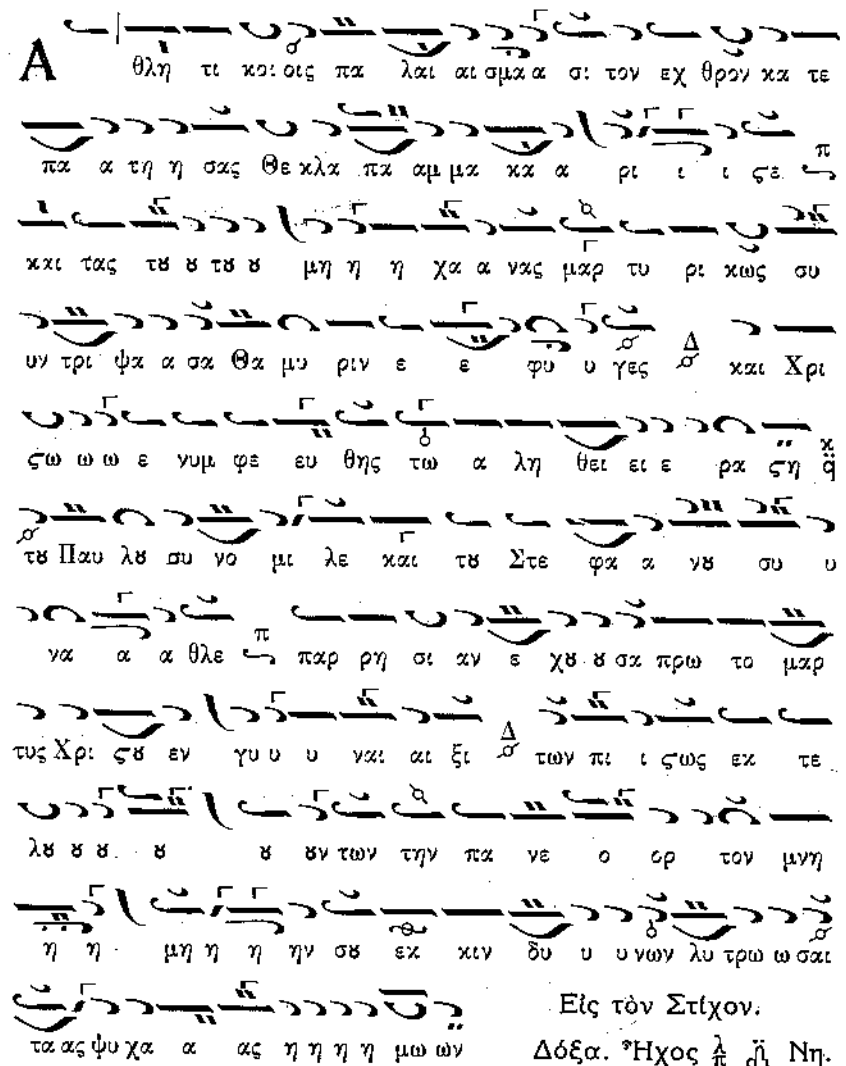 Α θλη τι κοι οις πα λαι αι σμα α σι τον εχ θρον κα τε
πα α τη η σας Θε κλα πα αμ μα κα α ρι ι ι ϛε π
και τας τȣ ȣ τȣ ȣ μη η η χα α νας μαρ τυ ρι κως συ
υν τρι ψα α σα Θα μυ ριν ε ε φυ υ γες Δ και Χρι
ϛω ω ω ε νυμ φε ευ θης τω α λη θει ει ε ρα ϛη κ q̈
τȣ Παυ λȣ συ νο μι λε και τȣ Στε φα α νȣ συ υ
να α α θλε π παρ ρη σι αν ε χȣ ȣ σα πρω το μαρ
τυς Χρι ϛȣ εν γυ υ υ ναι αι ξι Δ των πι ι ϛως εκ τε
λȣ ȣ ȣ ȣ ȣ ȣν των την πα νε ο ορ τον μνη
η η μη η η ην σȣ εκ κιν δυ υ υ νων λυ τρω ω σαι
τα ας ψυ χα α ας η η η η μω ων
Εἰς τὸν Στίχον.
Δόξα. Ἦχος λ π η̈ Νη.